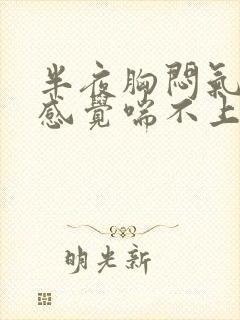 半夜胸悶氣
感覺喘不上
明光新